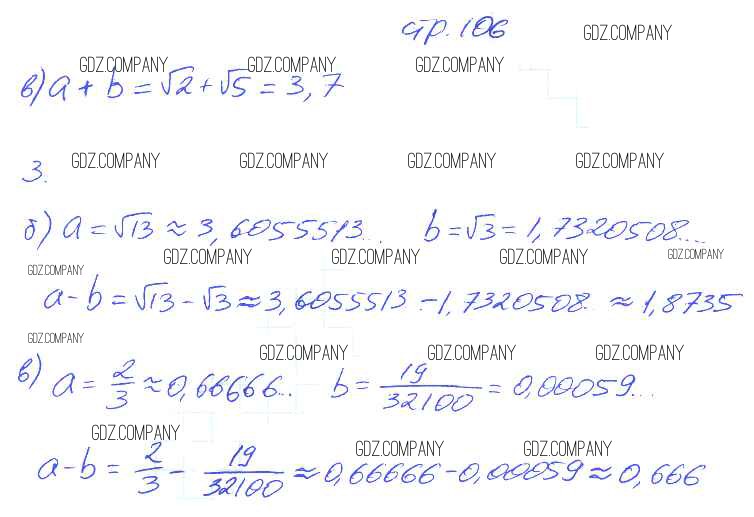 стр. 106 GDZ.COMPANY
GDZ.COMPANY GDZ.COMPANY GDZ.COMPANY
в) a + b = √2 + √5 = 3,7
3. GDZ.COMPANY GDZ.COMPANY GDZ.COMPANY GDZ.COMPANY
б) a = √13 ≈ 3,6055513... b = √3 = 1,7320508...
GDZ.COMPANY GDZ.COMPANY GDZ.COMPANY GDZ.COMPANY
GDZ.COMPANY
a - b = √13 - √3 ≈ 3,6055513 - 1,7320508.. ≈ 1,8735
GDZ.COMPANY
GDZ.COMPANY GDZ.COMPANY GDZ.COMPANY
в) a = 2/3 ≈ 0,66666... b = 19/32100 = 0,00059...
GDZ.COMPANY GDZ.COMPANY GDZ.COMPANY
a - b = 2/3 - 19/32100 ≈ 0,66666 - 0,00059 ≈ 0,666